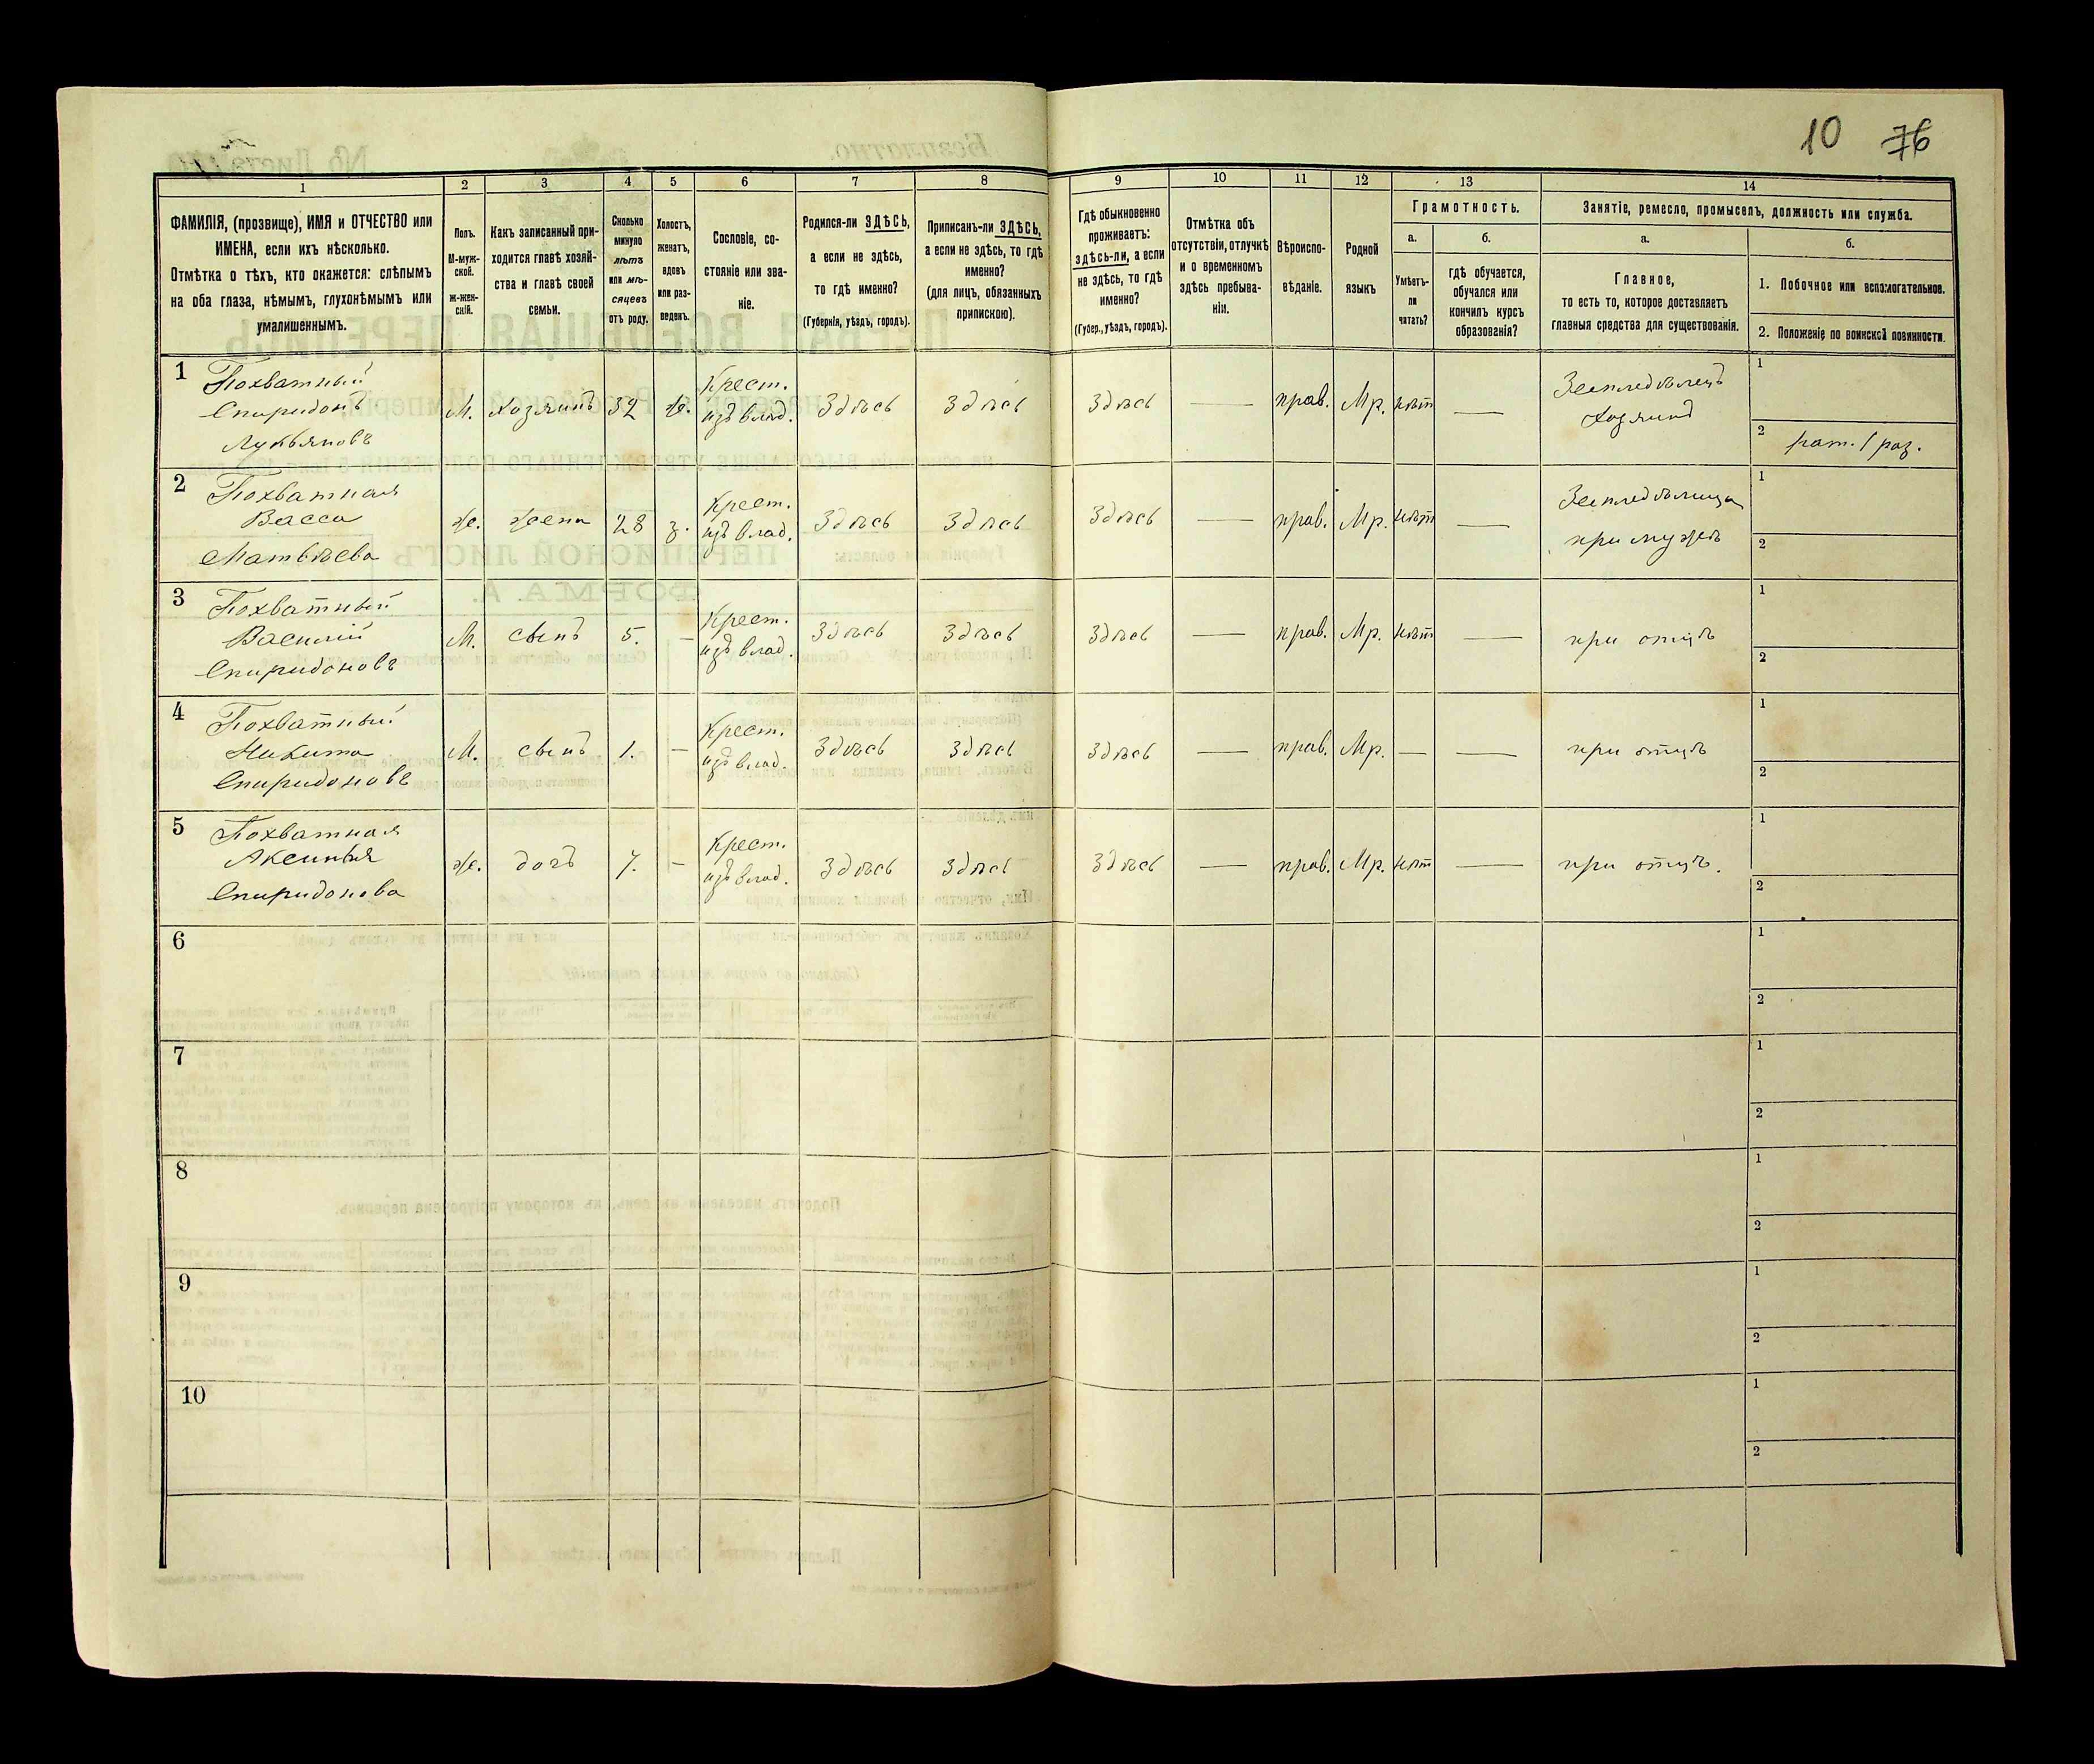 10 76
1 2 3 4 5 6 7 8 9 10 11 12 13 14
ФАМИЛІЯ, (прозвище), ИМЯ и ОТЧЕСТВО или
ИМЕНА, если ихъ нѣсколько.
Отмѣтка о тѣхъ, кто окажется: слѣпымъ
на оба глаза, нѣмымъ, глухонѣмымъ или
умалишеннымъ.
Полъ.
М-муж-
ской.
ж-жен-
скій.
Какъ записанный при-
ходится главѣ хозяй-
ства и главѣ своей
семьи.
Сколько
минуло
лѣтъ
или мѣ-
сяцевъ
отъ роду.
Холостъ,
женатъ,
вдовъ
или раз-
веденъ.
Сословіе, со-
стояніе или зва-
ніе.
Родился-ли ЗДѢСЬ,
а если не здѣсь,
то гдѣ именно?
(Губернія, уѣздъ, городъ).
Приписанъ-ли ЗДѢСЬ,
а если не здѣсь, то гдѣ
именно?
(для лицъ, обязанныхъ
припискою).
Гдѣ обыкновенно
проживаетъ:
здѣсь-ли, а если
не здѣсь, то гдѣ
именно?
(Губер., уѣздъ, городъ).
Отмѣтка объ
отсутствіи, отлучкѣ
и о временномъ
здѣсь пребыва-
ніи.
Вѣроиспо-
вѣданіе.
Родной
языкъ
Грамотность.
а.
Умѣетъ-
ли
читать?
б.
гдѣ обучается,
обучался или
кончилъ курсъ
образованія?
Занятіе, ремесло, промыселъ, должность или служба.
а.
Главное,
то есть то, которое доставляетъ
главныя средства для существованія.
б.
1. Побочное или вспомогательное.
2. Положеніе по воинской повинности.
1 Похватный
Спиридонъ
Лукьяновъ
М. Хозяинъ 32 ж. Крест.
изъ влад. Здѣсь Здѣсь Здѣсь — прав. Мр. нѣтъ — Земледѣлецъ
Хозяинъ
1
2 рат. 1 раз.
2 Похватная
Васса
Матвѣева
Ж. жена 28 з. Крест.
изъ влад. Здѣсь Здѣсь Здѣсь — прав. Мр. нѣтъ — Земледѣлица
при мужѣ
1
2
3 Похватный
Василій
Спиридоновъ
М. сынъ 5. — Крест.
изъ влад. Здѣсь Здѣсь Здѣсь — прав. Мр. нѣтъ — при отцѣ
1
2
4 Похватный
Никита
Спиридоновъ
М. сынъ 1. — Крест.
изъ влад. Здѣсь Здѣсь Здѣсь — прав. Мр. — — при отцѣ
1
2
5 Похватная
Аксинья
Спиридонова
Ж. дочь 7. — Крест.
изъ влад. Здѣсь Здѣсь Здѣсь — прав. Мр. нѣт — при отцѣ.
1
2
6 1
2
7 1
2
8 1
2
9 1
2
10 1
2